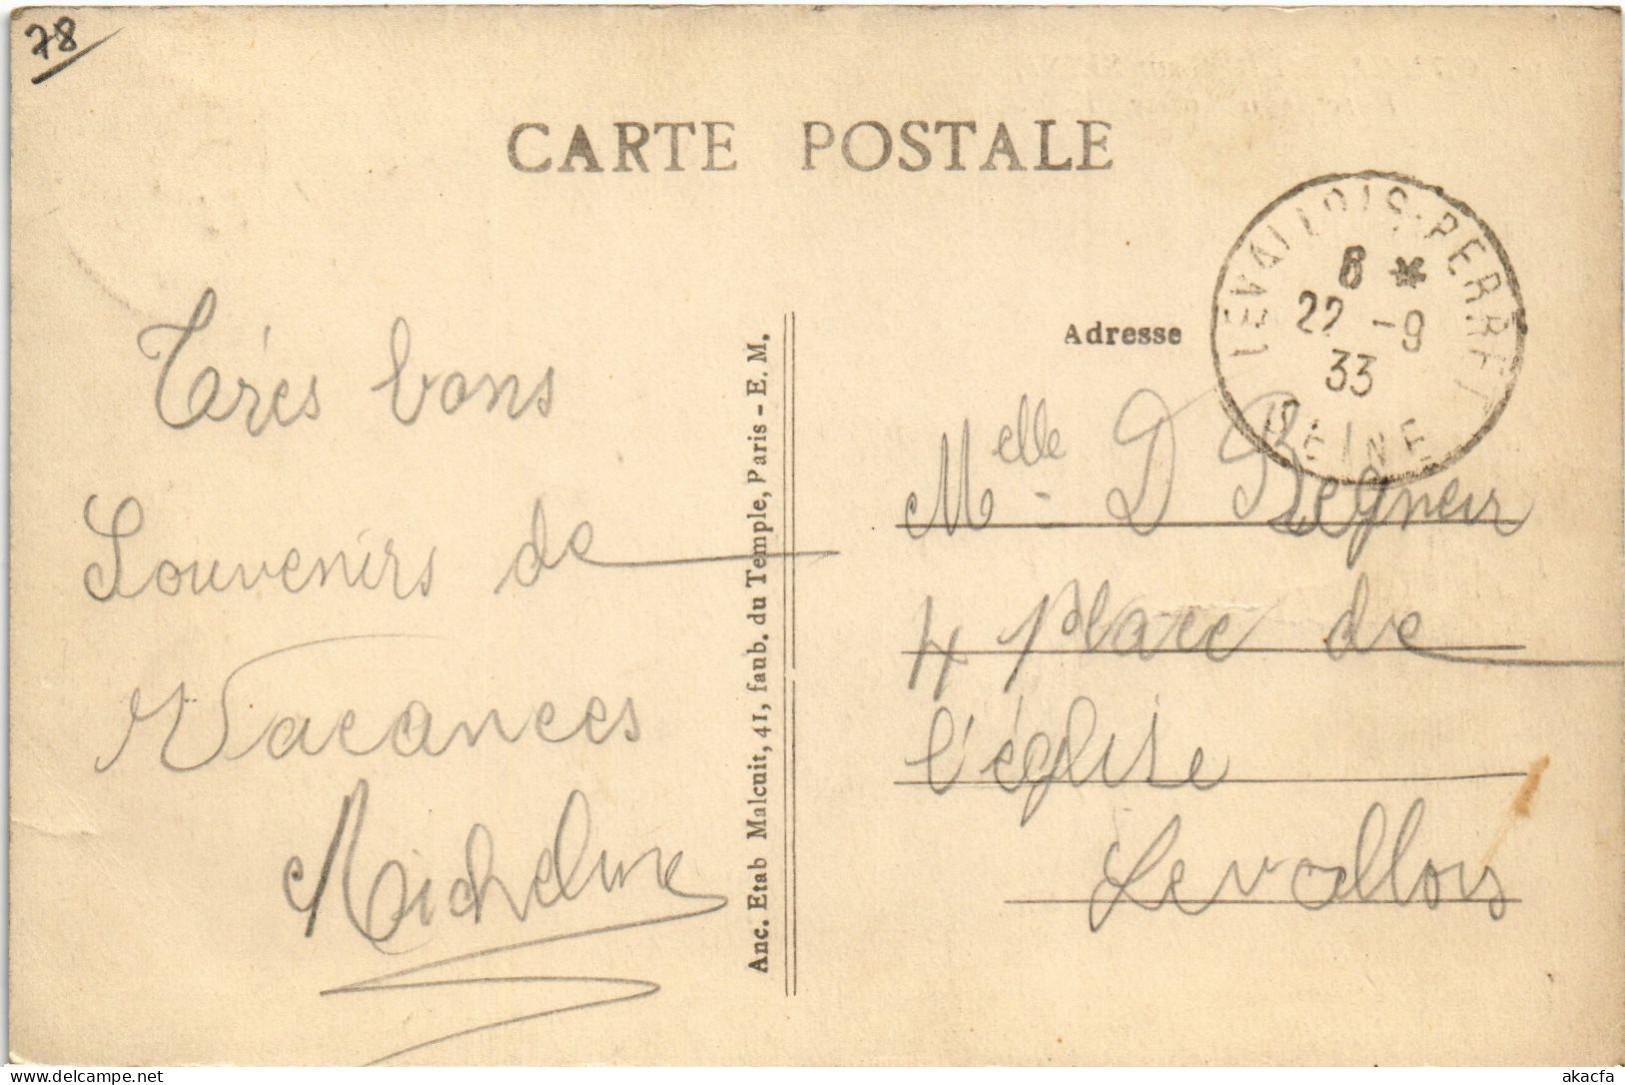 78
CARTE POSTALE
LEVALLOIS-PERRET
6 *
22 -9
33
SEINE
Adresse
Très bons
Souvenirs de
Vacances
Micheline
Anc. Etab Malcuit, 41, faub. du Temple, Paris - E. M.
Melle - D Begneur
4 Place de
l'église
Levallois
delcampe.net
akacfa